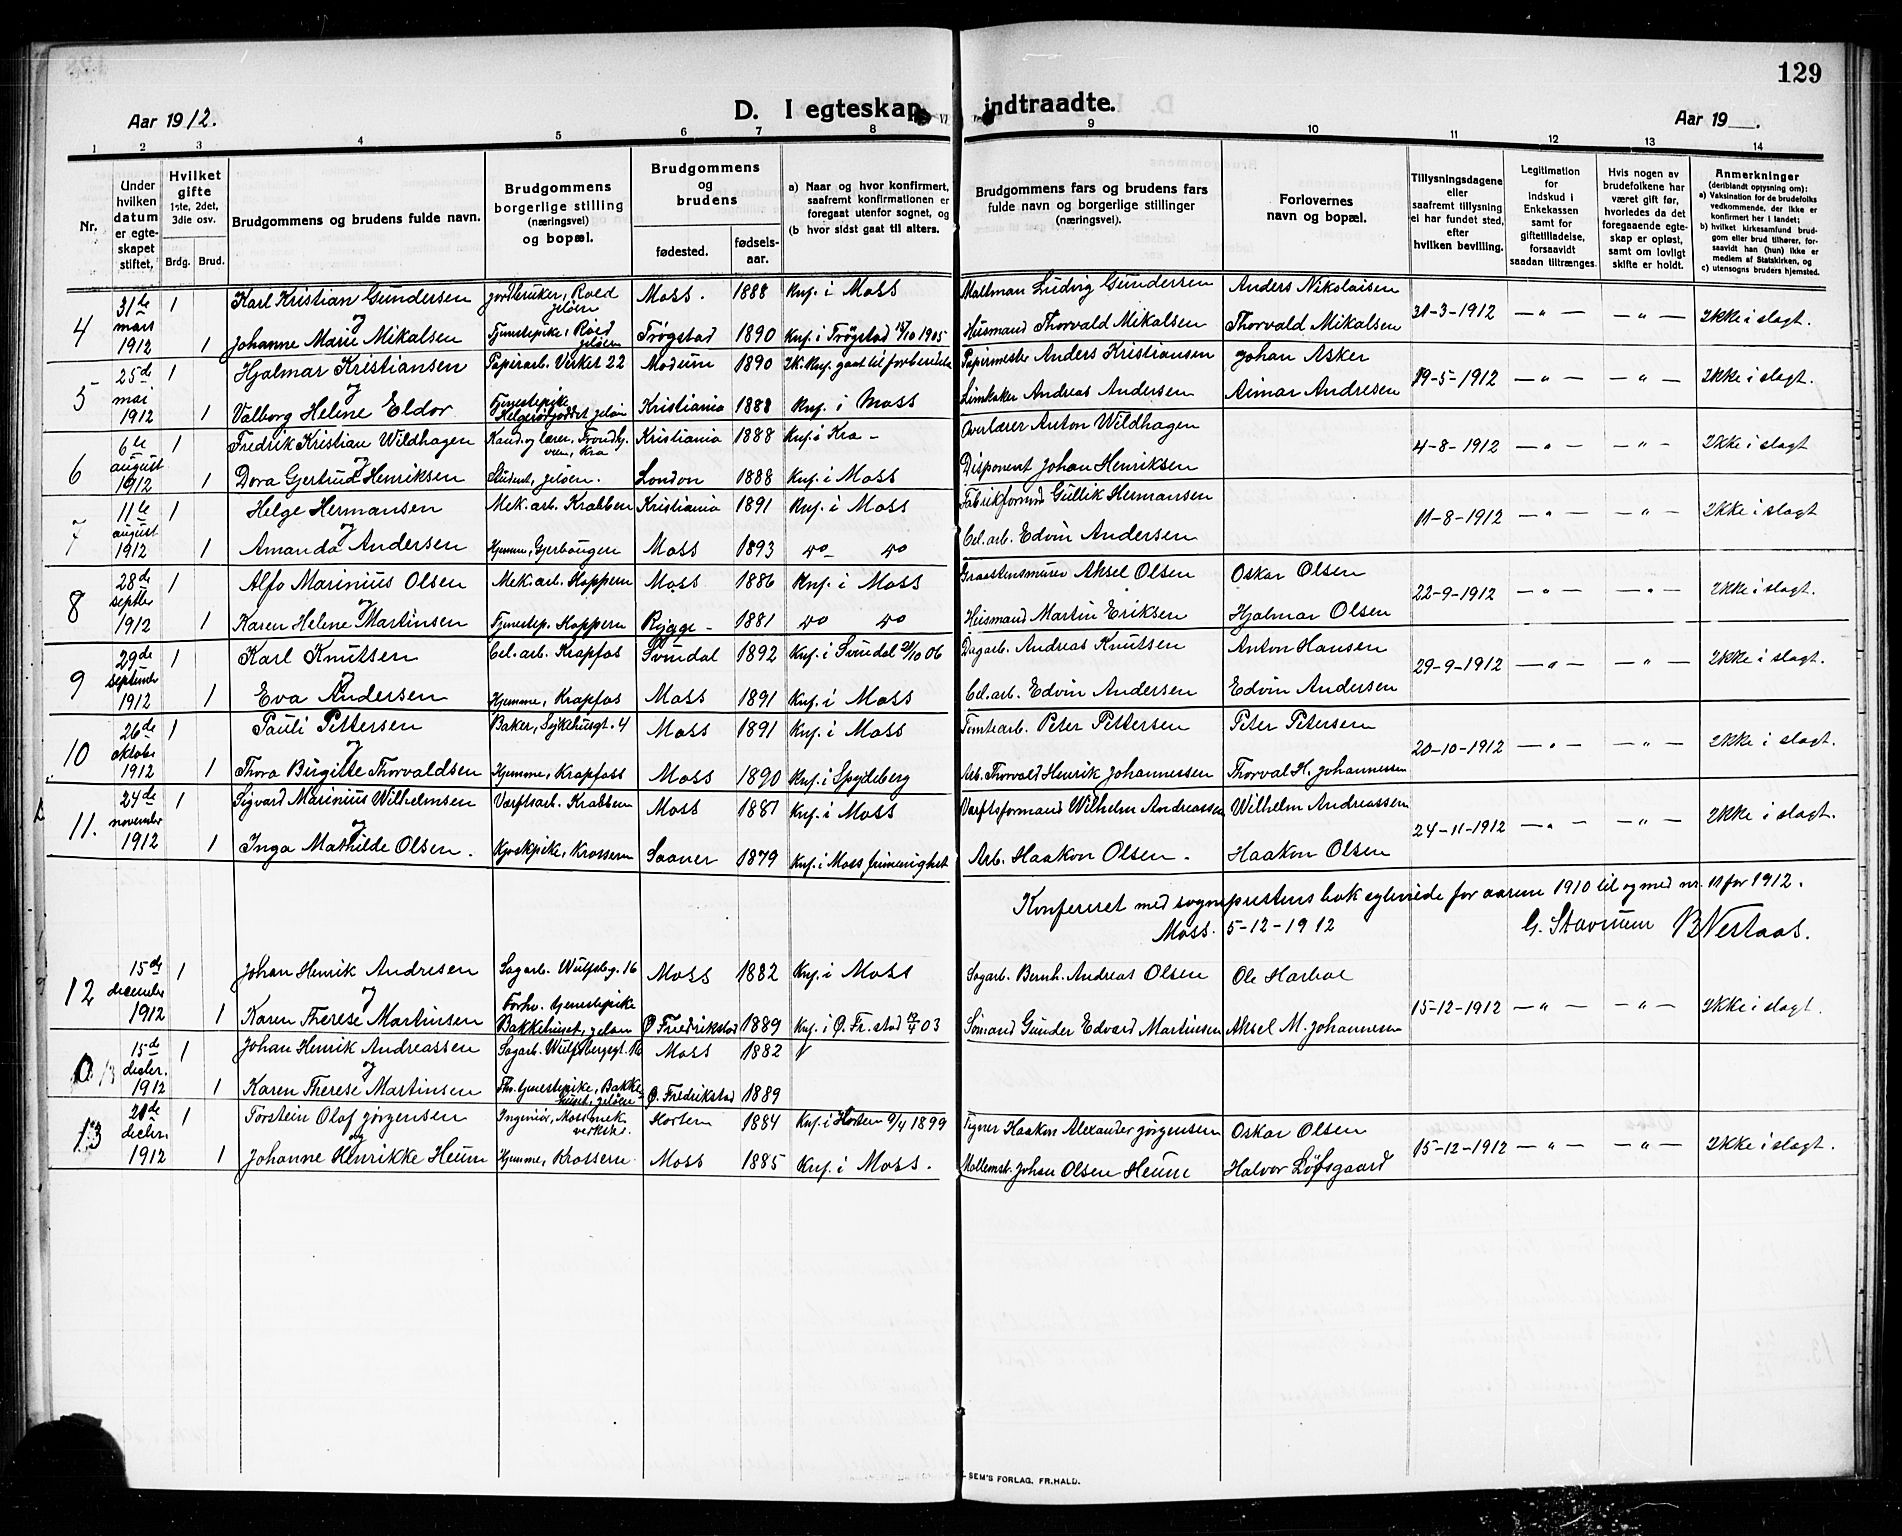 129
Aar 1912.
D. I egteskap indtraadte.
Aar 19__.
1 2 3 4 5 6 7 8 9 10 11 12 13 14
Nr.
Under hvilken datum er egteskapet stiftet.
Hvilket gifte 1ste, 2det, 3die osv.
Brdg. Brud.
Brudgommens og brudens fulde navn.
Brudgommens borgerlige stilling (næringsvei) og bopæl.
Brudgommens og brudens
fødested. fødselsaar.
a) Naar og hvor konfirmert, saafremt konfirmationen er foregaat utenfor sognet, og
(b hvor sidst gaat til alters.
Brudgommens fars og brudens fars fulde navn og borgerlige stillinger (næringsvei).
Forlovernes navn og bopæl.
Tillysningsdagene eller saafremt tillysning ei har fundet sted, efter hvilken bevilling.
Legitimation for indskud i Enkekassen samt for giftetilladelse, forsaavidt saadan tiltrænges.
Hvis nogen av brudefolkene har været gift før, hvorledes da det foregaaende egteskap er opløst, samt om lovligt skifte er holdt.
Anmerkninger (deriblandt oplysning om):
a) Vaksination for de brudefolks vedkommende, der ikke er konfirmert her i landet;
b) hvilket kirkesamfund brudgom eller brud tilhører, forsaavidt han (hun) ikke er medlem af Statskirken, og
c) utensogns bruders hjemsted.
4 31te mars 1912 1 Karl Kristian Gundersen Jordbruker, Roed Jeløen Moss. 1888 Knf. i Moss Ludvig Gundersen Anders Nikolaisen 31-3-1912 — " — — " — Ikke i slegt.
og
1 Johanne Marie Mikalsen Tjenestepike, Roed Jeløen Trøgstad 1890 Knf. i Trøgstad 1905 Husmand Thorvald Mikalsen Thorvald Mikalsen
5 25de mai 1912 1 Hjalmar Kristiansen Papirarb. Verket 22 Modum 1890 Ik. Knf. gaat til forberedelse Papirmester Anders Kristiansen Johan Asker 19-5-1912 — " — — " — Ikke i slegt.
og
1 Valborg Helene Eldor Tjenestepike Jeløen Kristiania 1888 Knf. i Moss Limkoker Andreas Andersen Aimar Andresen
6 6te august 1912 1 Fredrik Kristian Wildhagen Kand. og lærer, Trondhj. veien, Kra Kristiania 1888 Knf. i Kra - Overlærer Anton Wildhagen 4-8-1912 — " — — " — Ikke i slegt
og
1 Dora Gjertrud Henriksen Student, Jeløen. London 1888 Knf. i Moss Disponent Johan Henriksen
7 11te august 1912 1 Helge Hermansen Mek. arb. Krabben Kristiania 1891 Knf. i Moss Fabrikformnd Gullik Hermansen 11-8-1912 — " — — " — Ikke i slegt
og
1 Amanda Andersen Hjemme, Gjerbougen Moss 1893 do do Cel. arb. Edvin Andersen
8 28de septbr 1912 1 Alfo Marinius Olsen Mek. arb. Koppern Moss 1886 Knf. i Moss Graastensmurer Aksel Olsen Oskar Olsen 22-9-1912 — " — — " — Ikke i slegt.
og
1 Karen Helene Martinsen Tjenestep. Koppern Rygge - 1881 do do Husmand Martin Eriksen Hjalmar Olsen
9 29de september 1912 1 Karl Knutsen Cel. arb. Krapfos Svindal 1892 Knf. i Svindal 06 Dagarb. Andreas Knutsen Anton Hansen 29-9-1912 — " — — " — Ikke i slegt.
og
1 Eva Andersen Hjemme, Krapfos Moss 1891 Knf. i Moss Cel. arb. Edvin Andersen Edvin Andersen
10 26de oktobr 1912 1 Pauli Pettersen Baker, Sykehusgt. 4 Moss 1891 Knf. i Moss Tomtearb. Peter Pettersen Peter Petersen 20-10-1912 — " — — " — Ikke i slegt.
og
1 Thora Birgitte Thorvaldsen Hjemme, Krapfoss Moss 1890 Knf. i Spydeberg Arb. Thorvald Henrik Johannessen Thorval H. Johannessen
11. 24de november 1912 1 Sigvard Marinius Wilhelmsen Værftsarb. Krabben Moss 1881 Knf. i Moss Værftsformand Wilhelm Andreassen Wilhelm Andreassen 24-11-1912 — " — — " — Ikke i slegt.
og
1 Inga Mathilde Olsen. Krosseren Saaner 1879 Knf. i Moss frimenighet Arb. Haakon Olsen. Haakon Olsen
Konfereret med sogneprestens bok egteviede for aarene 1910 til og med nr. 11 for 1912.
Moss. 5-12-1912 G. Stavrum B Nestaas.
12 15de december 1912 1 Johan Henrik Andresen Sagarb. Wulfsbg. 16 Moss 1882 Knf. i Moss Sagarb. Bernh. Andreas Olsen Ole Harboe 15-12-1912 — " — — " — Ikke i slegt.
og
1 Karen Therese Martinsen Forhv. tjenestepike Bakkehuset, Jeløen Ø. Fredrikstad 1889 Knf. i Ø. Fr.stad 03 Sømand Gunder Edvard Martinsen Aksel M. Johannesen
15de decbr. 1912 1 Johan Henrik Andreassen Sagarb. Wulfsbergsgt. 16 Moss 1882
og
1 Karen Therese Martinsen Fh. tjenestepike, Bakkehuset, Jeløen Ø. Fredrikstad 1889
13 decbr. 1912 1 Torstein Olaf Jørgensen Ingeniør, Moss mek verksted. Horten 1884 Knf. i Horten 9/4 1899 Tegner Haakon Alexander Jørgensen Oskar Olsen 15-12-1912 — " — — " — Ikke i slegt.
og
1 Johanne Henrikke Heum Hjemme, Krosseren Moss 1885 Knf. i Moss. Johan Olsen Heum Halvor Løfsgaard
SEM'S FORLAG. FR.HALD.